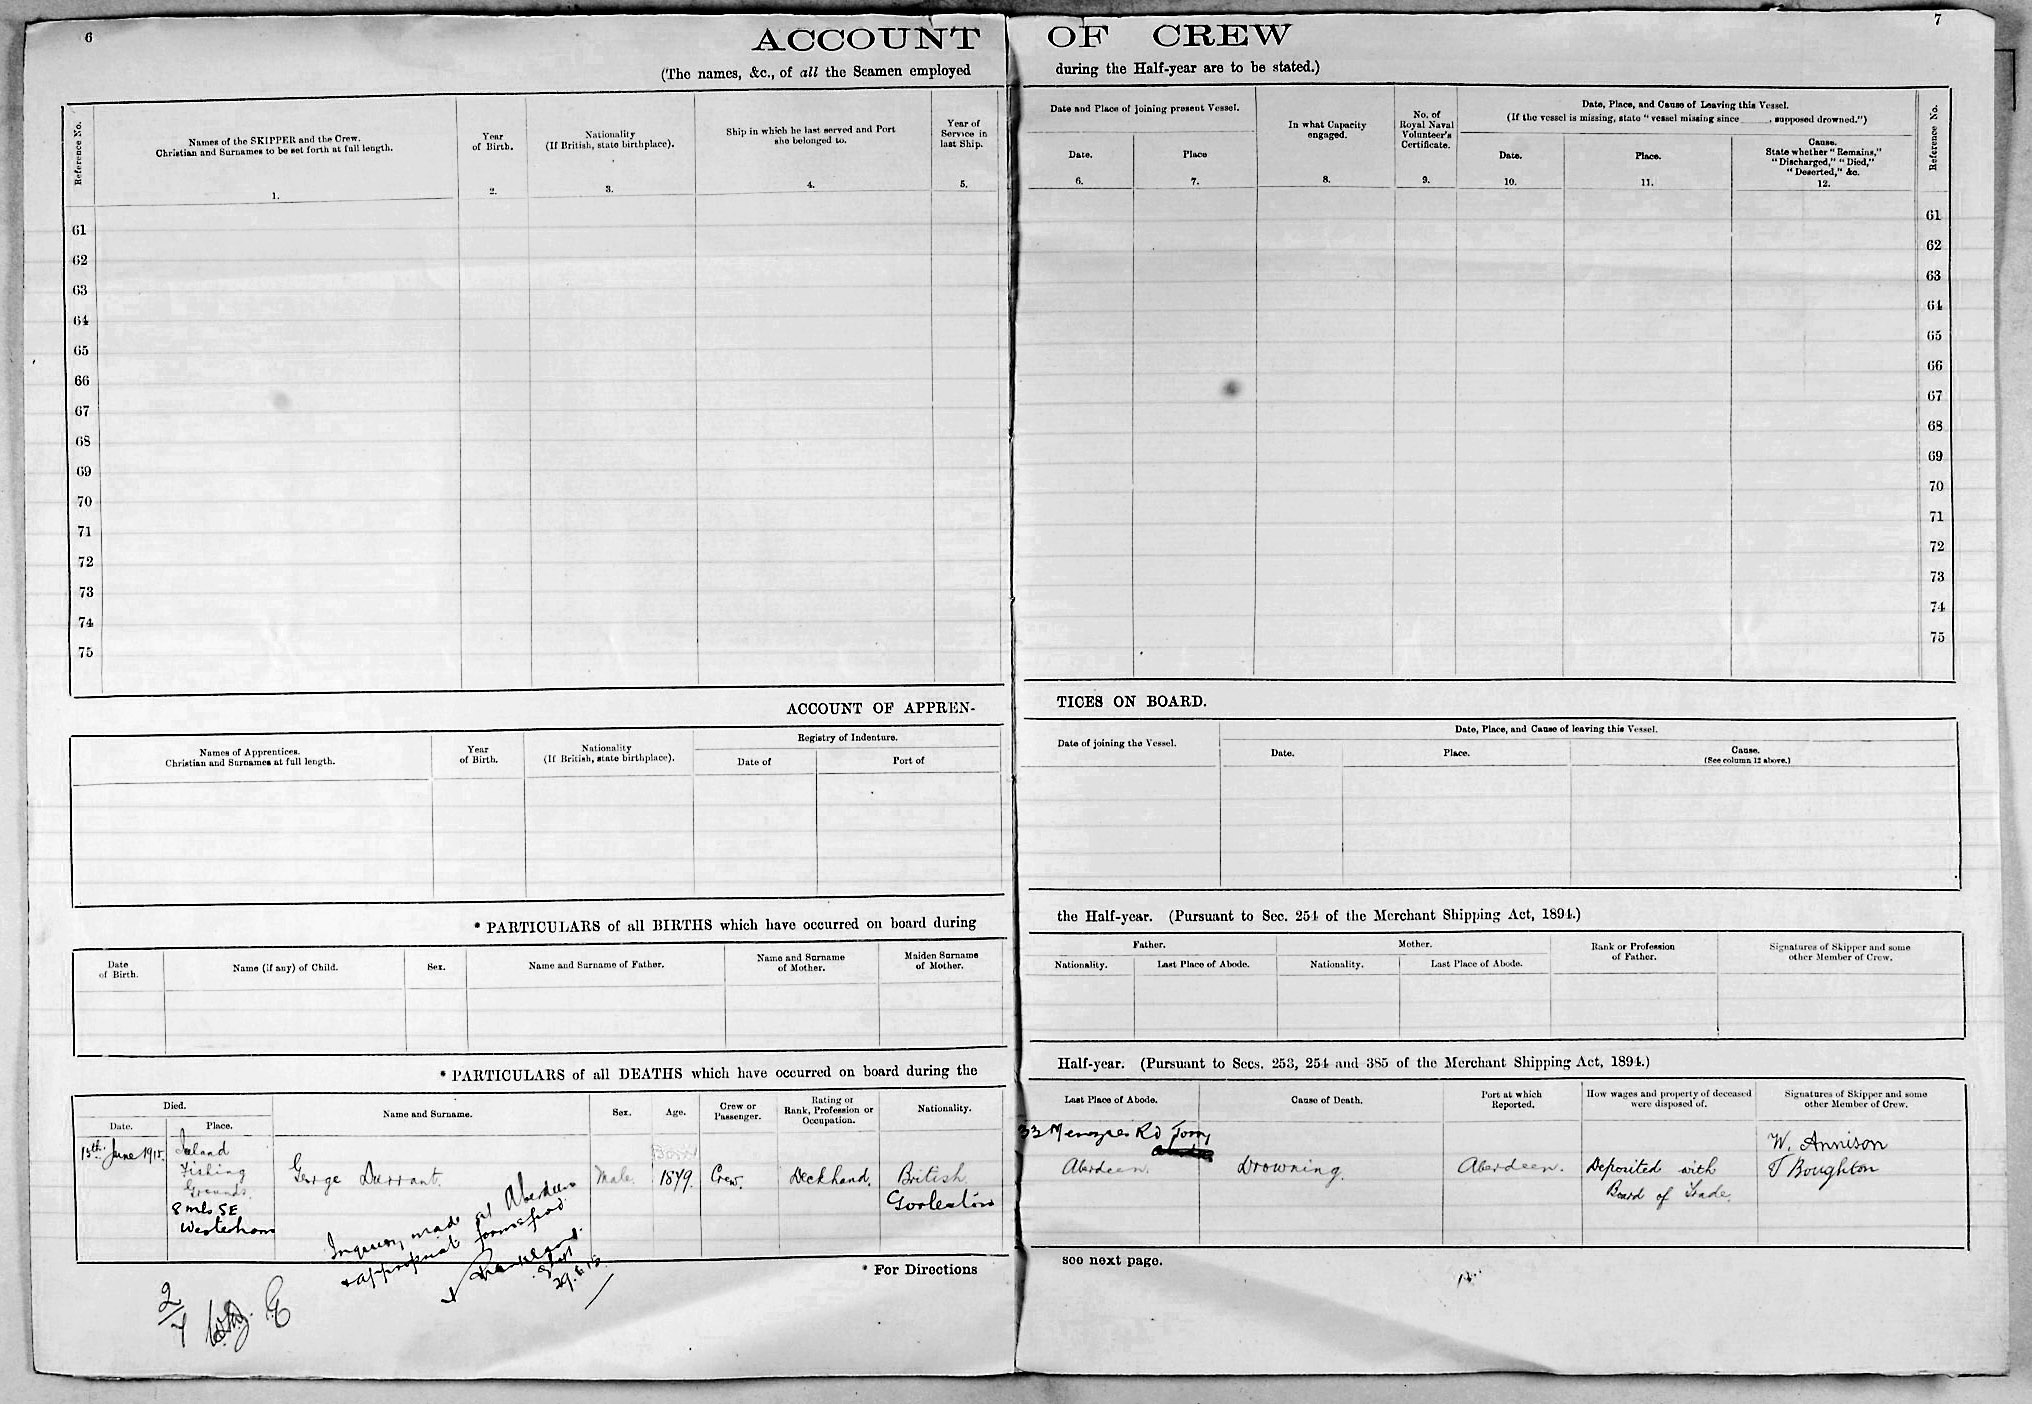 6
ACCOUNT OF CREW
7
(The names, &c., of all the Seamen employed during the Half-year are to be stated.)
Reference No.
Names of the SKIPPER and the Crew.
Christian and Surnames to be set forth at full length.
1.
Year
of Birth.
2.
Nationality
(If British, state birthplace).
3.
Ship in which he last served and Port
she belonged to.
4.
Year of
Service in
last Ship.
5.
Date and Place of joining present Vessel.
Date.
6.
Place
7.
In what Capacity
engaged.
8.
No. of
Royal Naval
Volunteer's
Certificate.
9.
Date, Place, and Cause of Leaving this Vessel.
(If the vessel is missing, state "vessel missing since ______, supposed drowned.")
Date.
10.
Place.
11.
Cause.
State whether "Remains,"
"Discharged," "Died,"
"Deserted," &c.
12.
Reference No.
61 61
62 62
63 63
64 64
65 65
66 66
67 67
68 68
69 69
70 70
71 71
72 72
73 73
74 74
75 75
ACCOUNT OF APPREN-TICES ON BOARD.
Names of Apprentices.
Christian and Surnames at full length.
Year
of Birth.
Nationality
(If British, state birthplace).
Registry of Indenture.
Date of
Port of
Date of joining the Vessel.
Date, Place, and Cause of leaving this Vessel.
Date.
Place.
Cause.
(See column 12 above.)
* PARTICULARS of all BIRTHS which have occurred on board during the Half-year. (Pursuant to Sec. 254 of the Merchant Shipping Act, 1894.)
Date
of Birth.
Name (if any) of Child.
Sex.
Name and Surname of Father.
Name and Surname
of Mother.
Maiden Surname
of Mother.
Father.
Nationality.
Last Place of Abode.
Mother.
Nationality.
Last Place of Abode.
Rank or Profession
of Father.
Signatures of Skipper and some
other Member of Crew.
* PARTICULARS of all DEATHS which have occurred on board during the Half-year. (Pursuant to Secs. 253, 254 and 385 of the Merchant Shipping Act, 1894.)
Died.
Date.
Place.
Name and Surname.
Sex.
Age.
Crew or
Passenger.
Rating or
Rank, Profession or
Occupation.
Nationality.
Last Place of Abode.
Cause of Death.
Port at which
Reported.
How wages and property of deceased
were disposed of.
Signatures of Skipper and some
other Member of Crew.
13th June 1915.
Iceland
Fishing
Grounds.
8 mls SE
Westerhorn
George Durrant.
Male.
Born
1879.
Crew.
Deckhand.
British.
Gorleston
33 Menzies Rd Torry
Aberdeen.
Drowning.
Aberdeen.
Deposited with
Board of Trade.
W. Annison
J Boughton
Inquiry made at Aberdeen
& appropriate forms filed
Supt
29.6.15
* For Directions see next page.
2/7